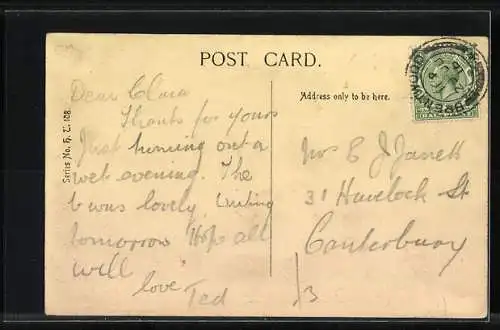 POST CARD.
Address only to be here.
Series No. H. L. 108.
Dear Clara
Thanks for yours
Just turning out a
wet evening. The
b was lovely. Writing
tomorrow Hope all
will
love Ted
Mrs E J Jarrett
31 Havelock St
Canterbury
/3
BRENTWOOD